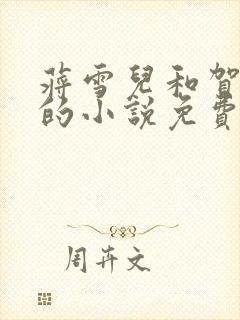 蔣雪兒和賀
的小說免費
周卉文